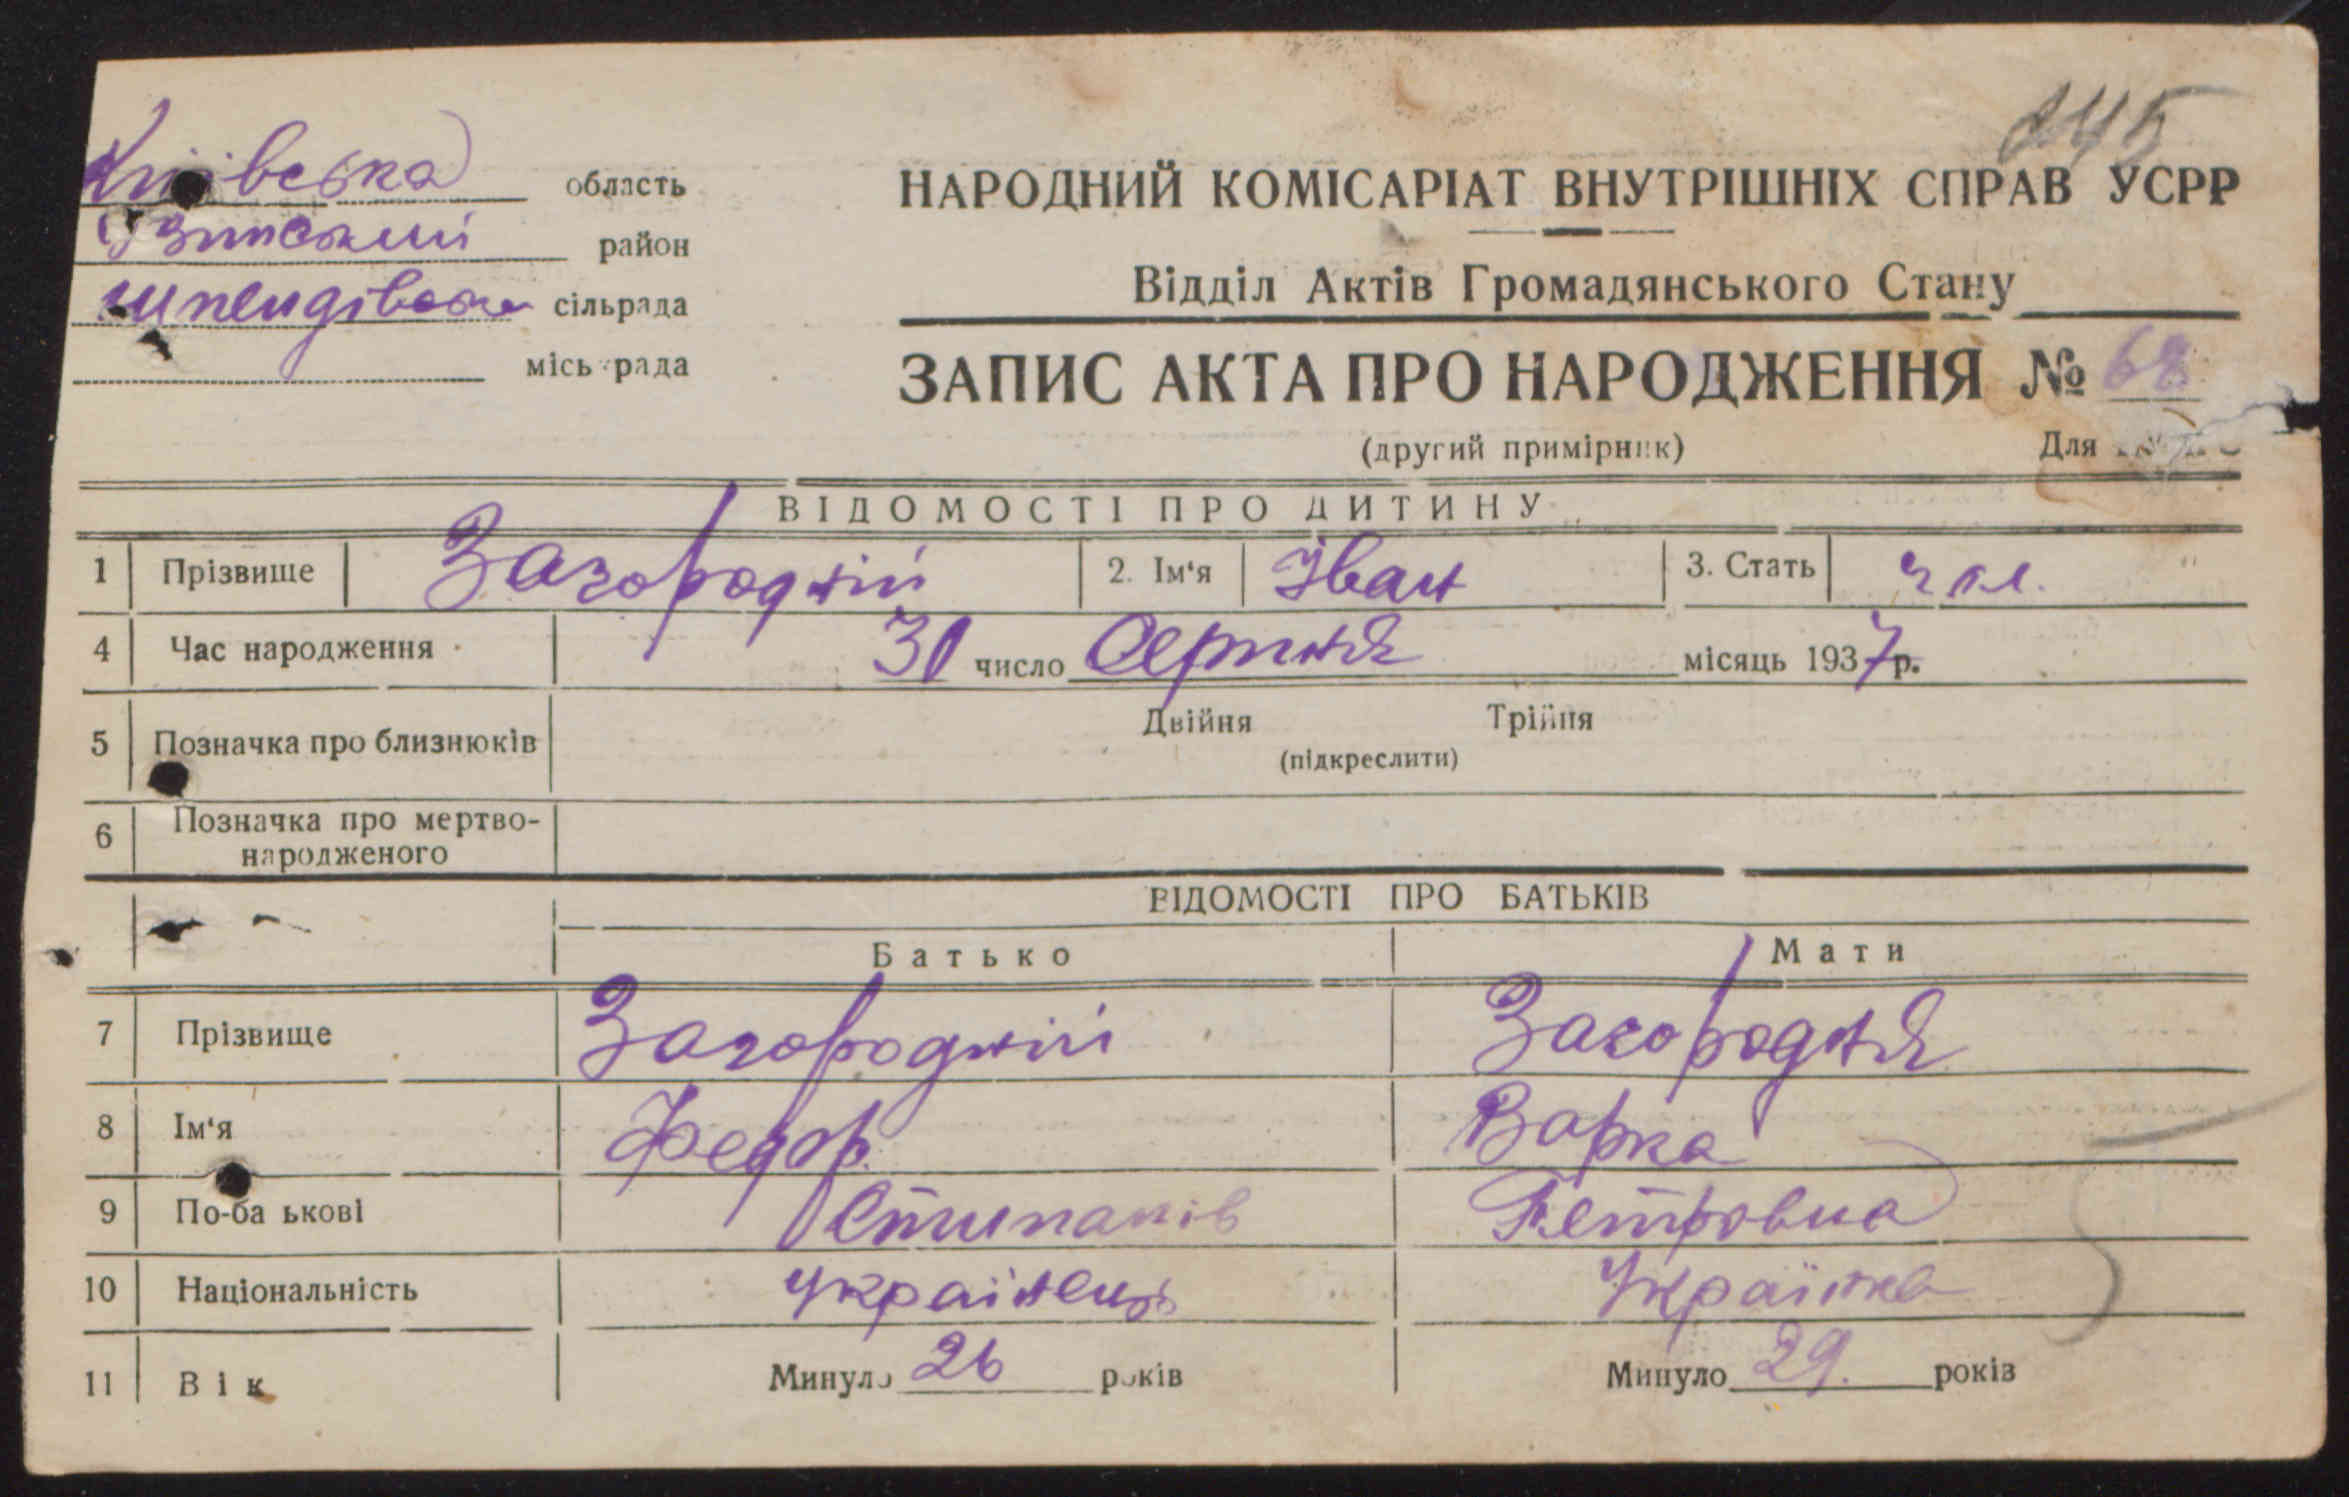 245
Київська область
Узинський район
Шпендівська сільрада
міськрада
НАРОДНИЙ КОМІСАРІАТ ВНУТРІШНІХ СПРАВ УСРР
Відділ Актів Громадянського Стану
ЗАПИС АКТА ПРО НАРОДЖЕННЯ № 68
(другий примірник) Для
ВІДОМОСТІ ПРО ДИТИНУ
1 Прізвище Загородній 2. Ім'я Іван 3. Стать чол.
4 Час народження 30 число Серпня місяць 1937 р.
5 Позначка про близнюків Двійня Трійня
(підкреслити)
6 Позначка про мертво-
народженого
ВІДОМОСТІ ПРО БАТЬКІВ
Батько Мати
7 Прізвище Загородній Загородня
8 Ім'я Федор. Варка
9 По-ба ькові Степанів Петровна
10 Національність українець Українка
11 Вік Минуло 26 років Минуло 29. років